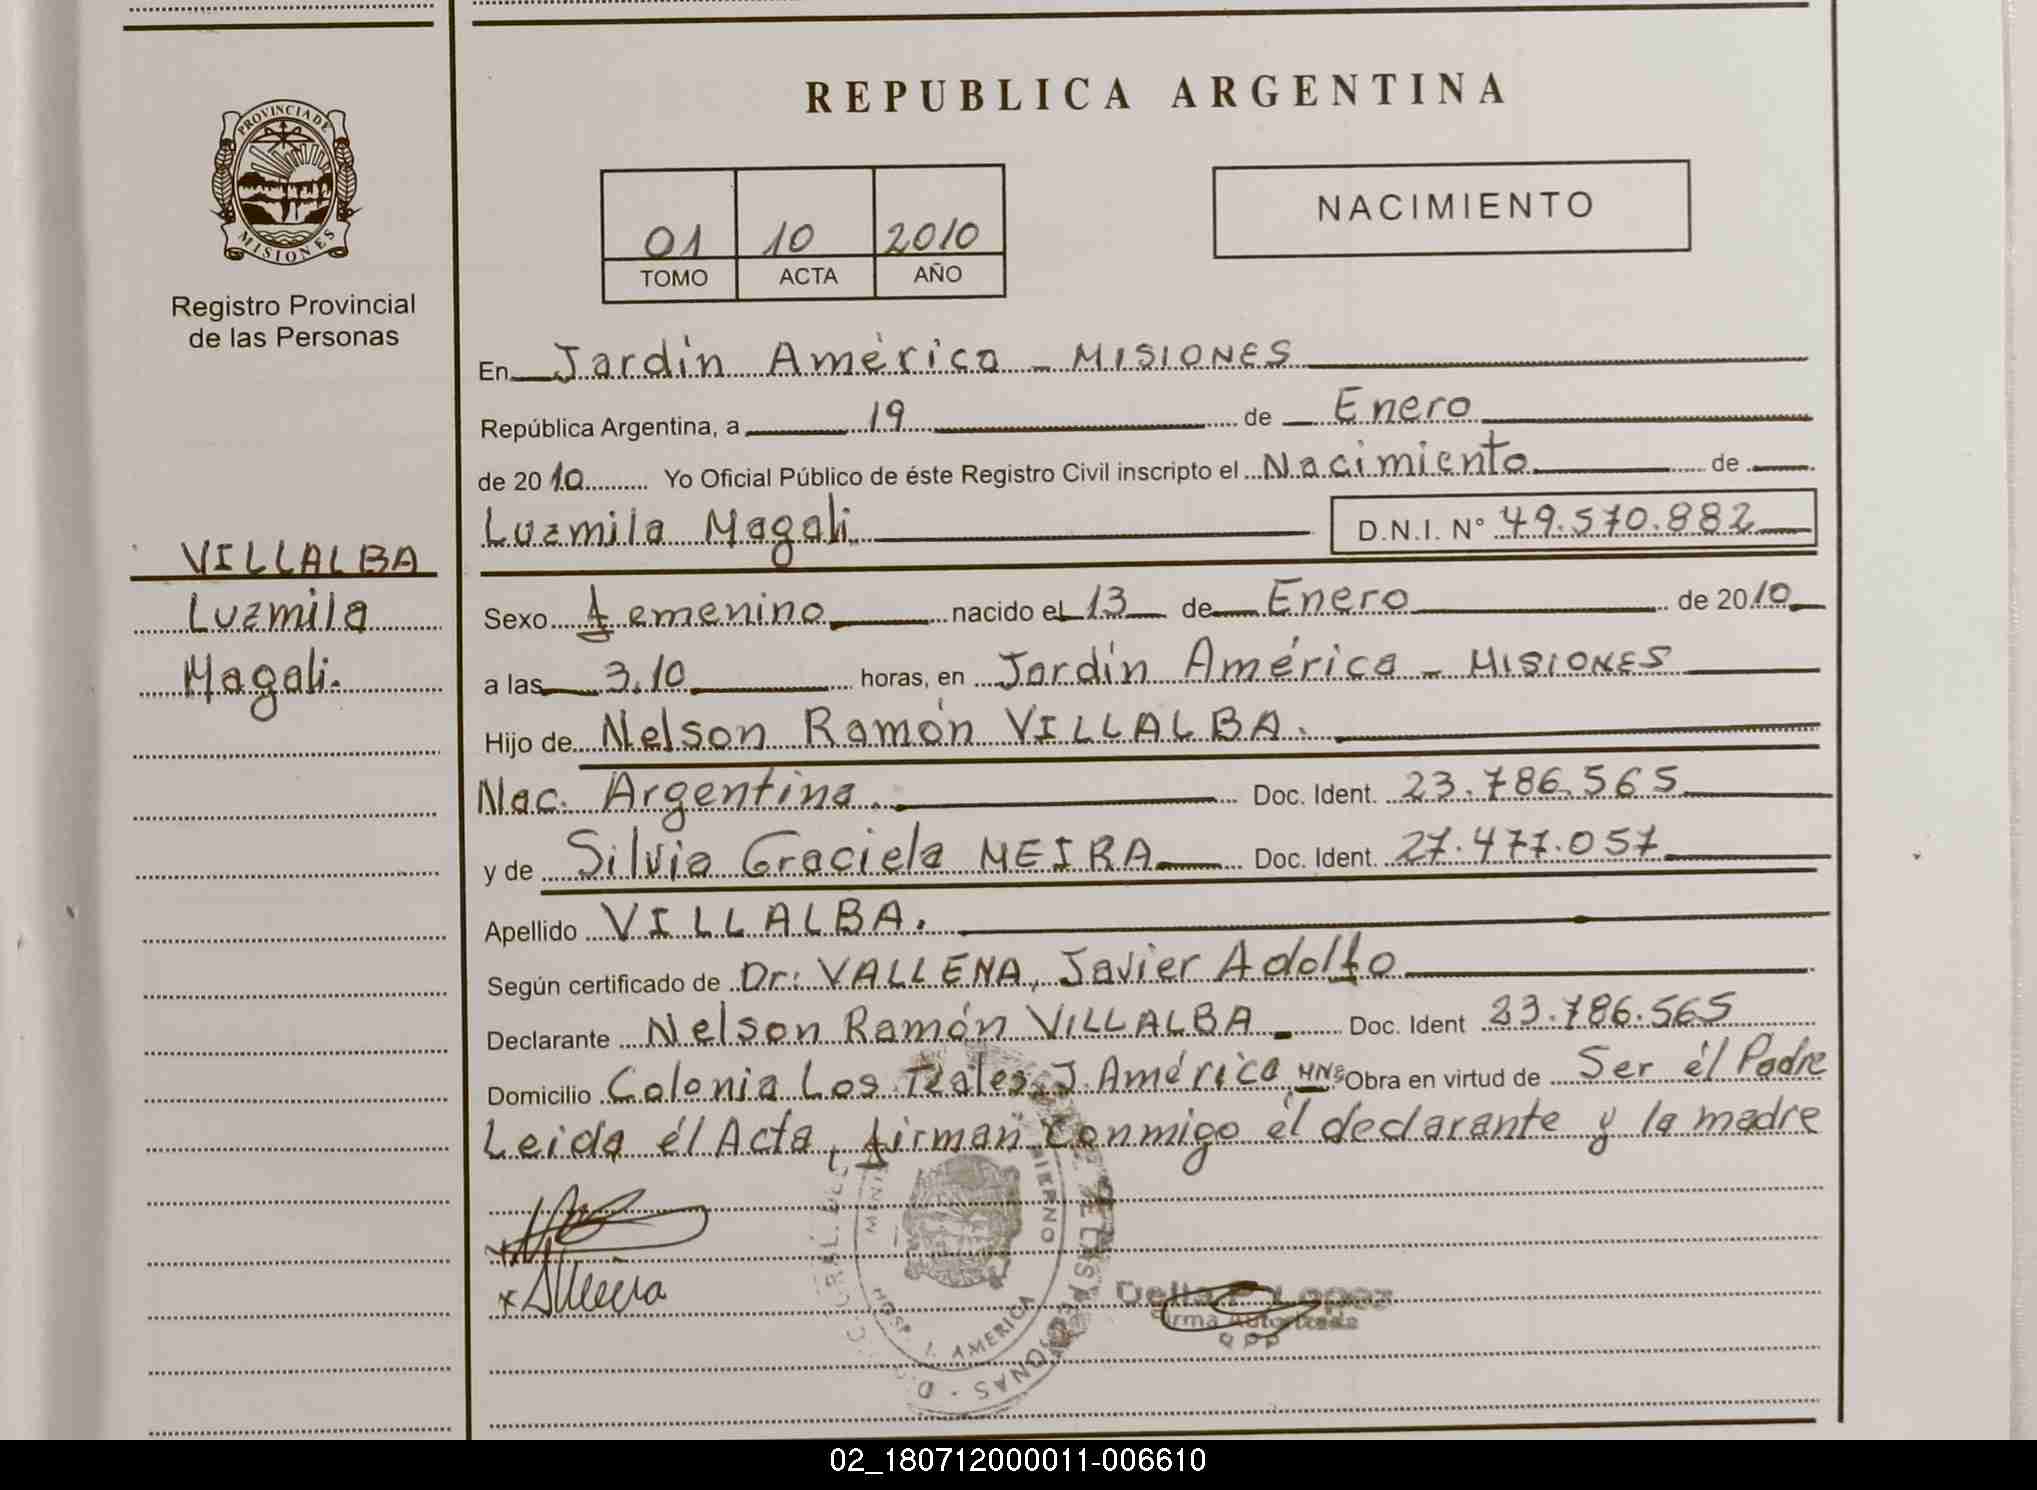 REPUBLICA ARGENTINA
PROVINCIA DE
MISIONES
Registro Provincial
de las Personas
VILLALBA
Luzmila
Magali.
01 10 2010
TOMO ACTA AÑO
NACIMIENTO
En Jardín América - MISIONES
República Argentina, a 19 de Enero
de 2010 Yo Oficial Público de éste Registro Civil inscripto el Nacimiento de
Luzmila Magali. D.N.I. N° 49.570.882
Sexo femenino nacido el 13 de Enero de 2010
a las 3.10 horas, en Jardín América - MISIONES
Hijo de Nelson Ramón VILLALBA.
Nac. Argentina. Doc. Ident. 23.786.565
y de Silvia Graciela MEIRA Doc. Ident. 27.477.057
Apellido VILLALBA.
Según certificado de Dr: VALLENA, Javier Adolfo
Declarante Nelson Ramón VILLALBA Doc. Ident 23.786.565
Domicilio Colonia Los Teales, J. América MNS Obra en virtud de Ser él Padre
Leida él Acta, firman Conmigo él declarante y la madre
HOSP. J. AMERICA
Lopez
Firma Autorizada
RPP
02_180712000011-006610